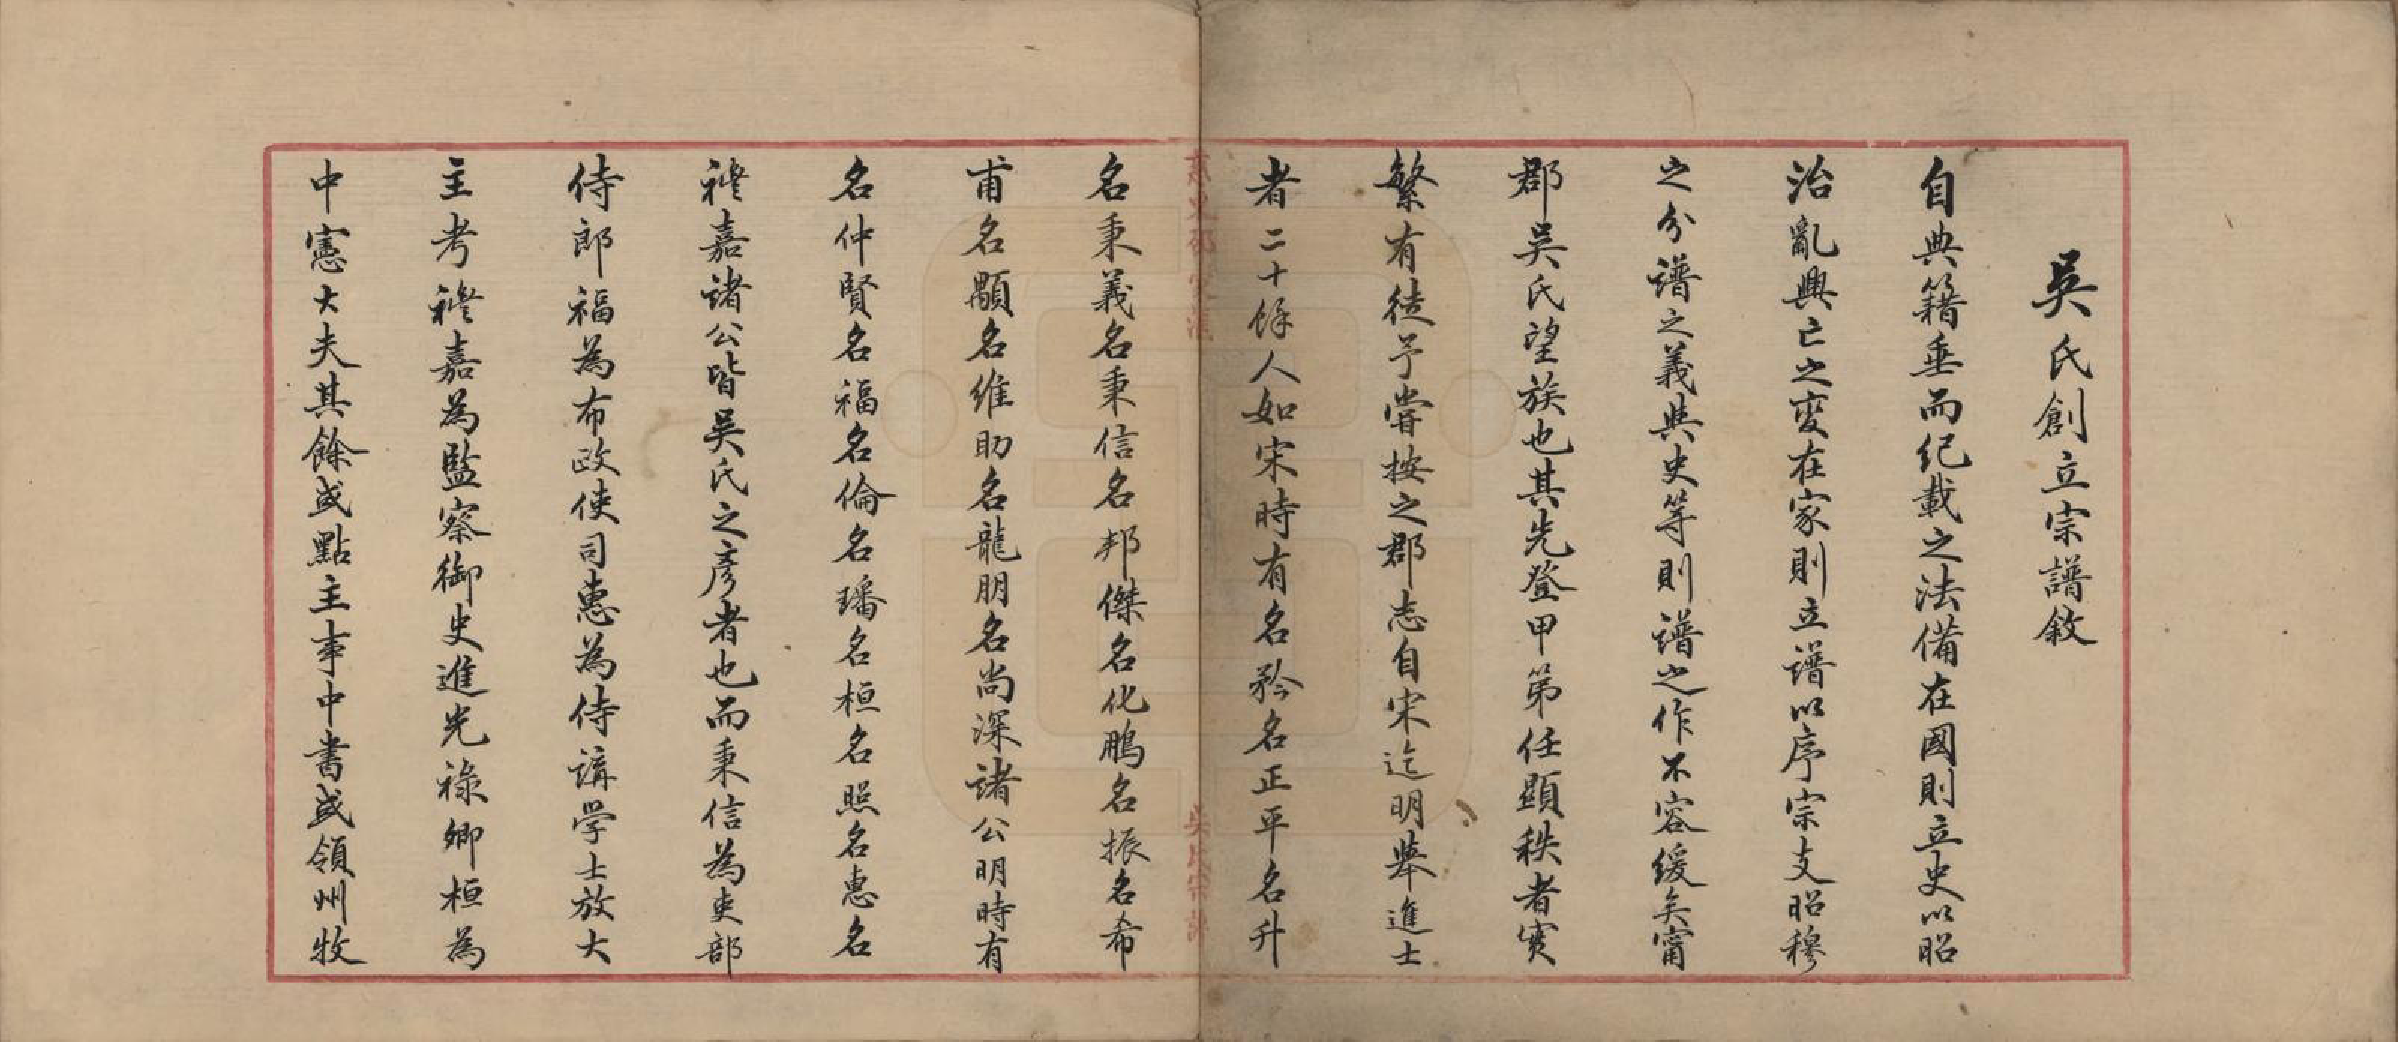 吳氏創立宗譜敘
自典籍垂而紀載之法備在國則立史以昭
治亂興亡之變在家則立譜以序宗支昭穆
之分譜之義與史等則譜之作不容緩矣甯
郡吳氏望族也其先登甲第任顯秩者寔
繁有徒予嘗按之郡志自宋迄明舉進士
者二十餘人如宋時有名矜名正平名升
名秉義名秉信名邦傑名化鵬名振名希
甫名顯名維助名龍朋名尚深諸公明時有
名仲賢名福名倫名璠名桓名照名惠名
禮嘉諸公皆吳氏之彥者也而秉信為吏部
侍郎福為布政使司惠為侍講學士放大
主考禮嘉為監察御史進光祿卿桓為
中憲大夫其餘或點主事中書或領州牧